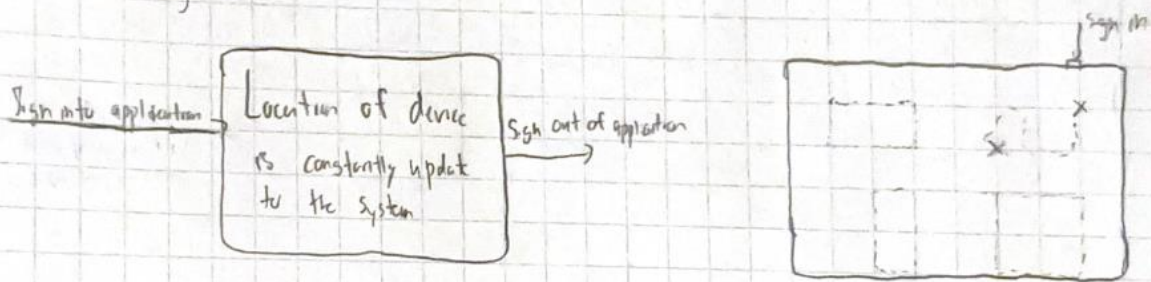 Sign into application
Location of device
is constantly update
to the system
Sign out of application
Sign in